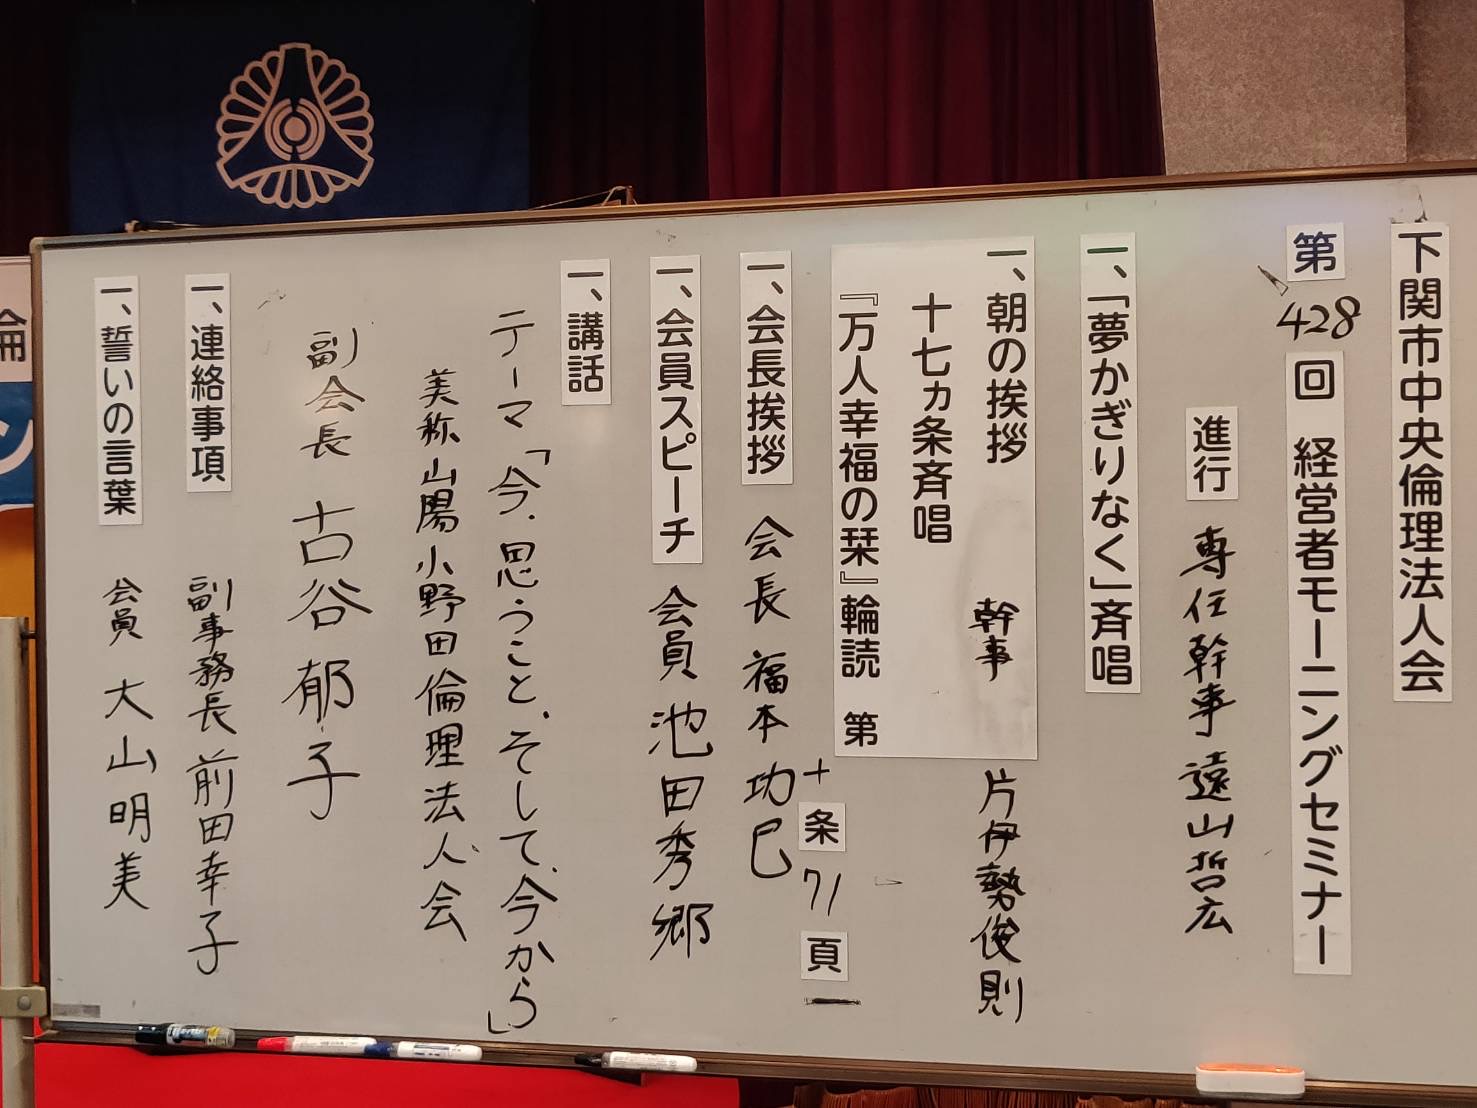 下関市中央倫理法人会
第428回 経営者モーニングセミナー
進行 専任幹事 遠山哲広
一、「夢かぎりなく」斉唱
一、朝の挨拶 幹事 片伊勢俊則
十七ヵ条斉唱
『万人幸福の栞』輪読 第十条71頁
一、会長挨拶 会長 福本功巳
一、会員スピーチ 会員 池田秀郷
一、講話
テーマ「今、思うこと、そして、今から」
美称山陽小野田倫理法人会
副会長 古谷郁子
一、連絡事項 副事務長 前田幸子
一、誓いの言葉 会員 大山明美
倫
ン